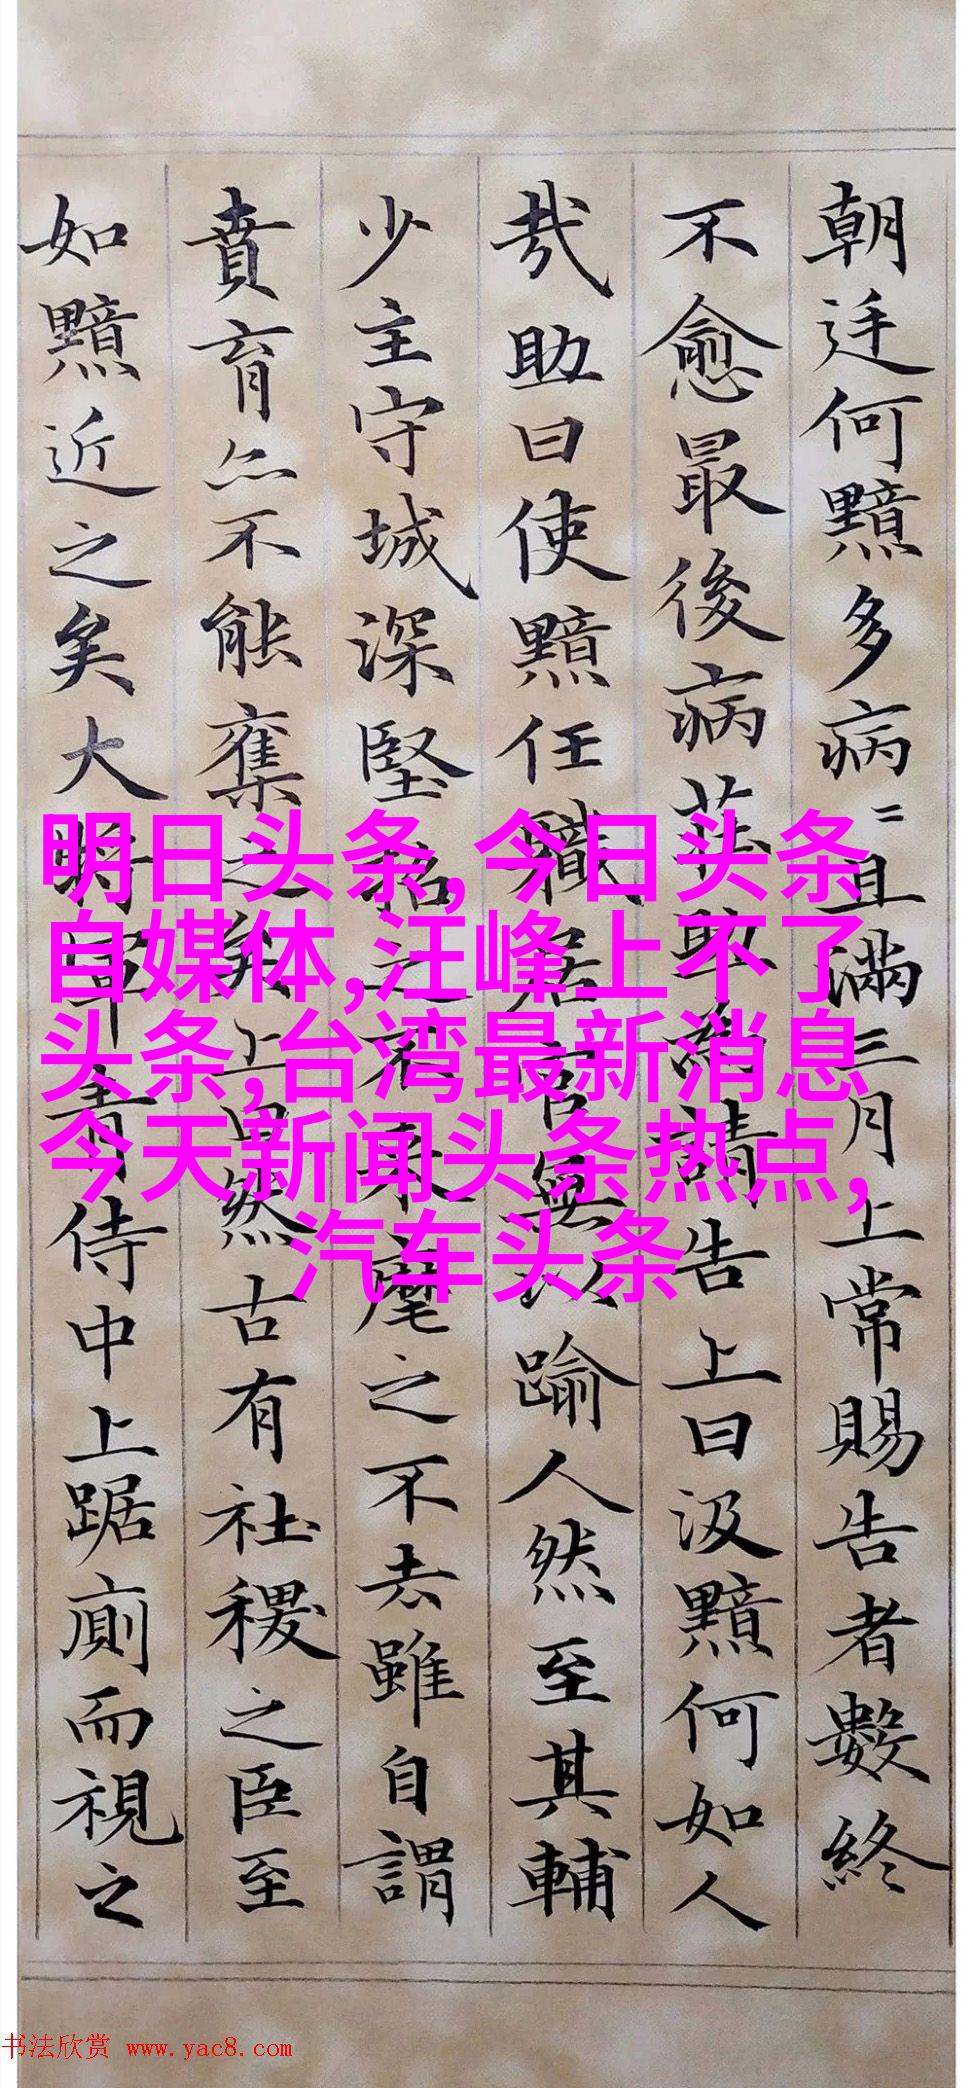 朝廷何黯多病〻且滿三月上常賜告者數終
不愈最後病莊助為請告上曰汲黯何如人
哉助曰使黯任職居官無以踰人然至其輔
少主守城深堅招之不来麾之不去雖自謂
賁育亦不能奪之矣上曰然古有社稷之臣至
如黯近之矣大將軍青侍中上踞廁而視之
明日头条,今日头条
自媒体,汪峰上不了
头条,台湾最新消息
今天新闻头条热点,
汽车头条
书法欣赏 www.yac8.com